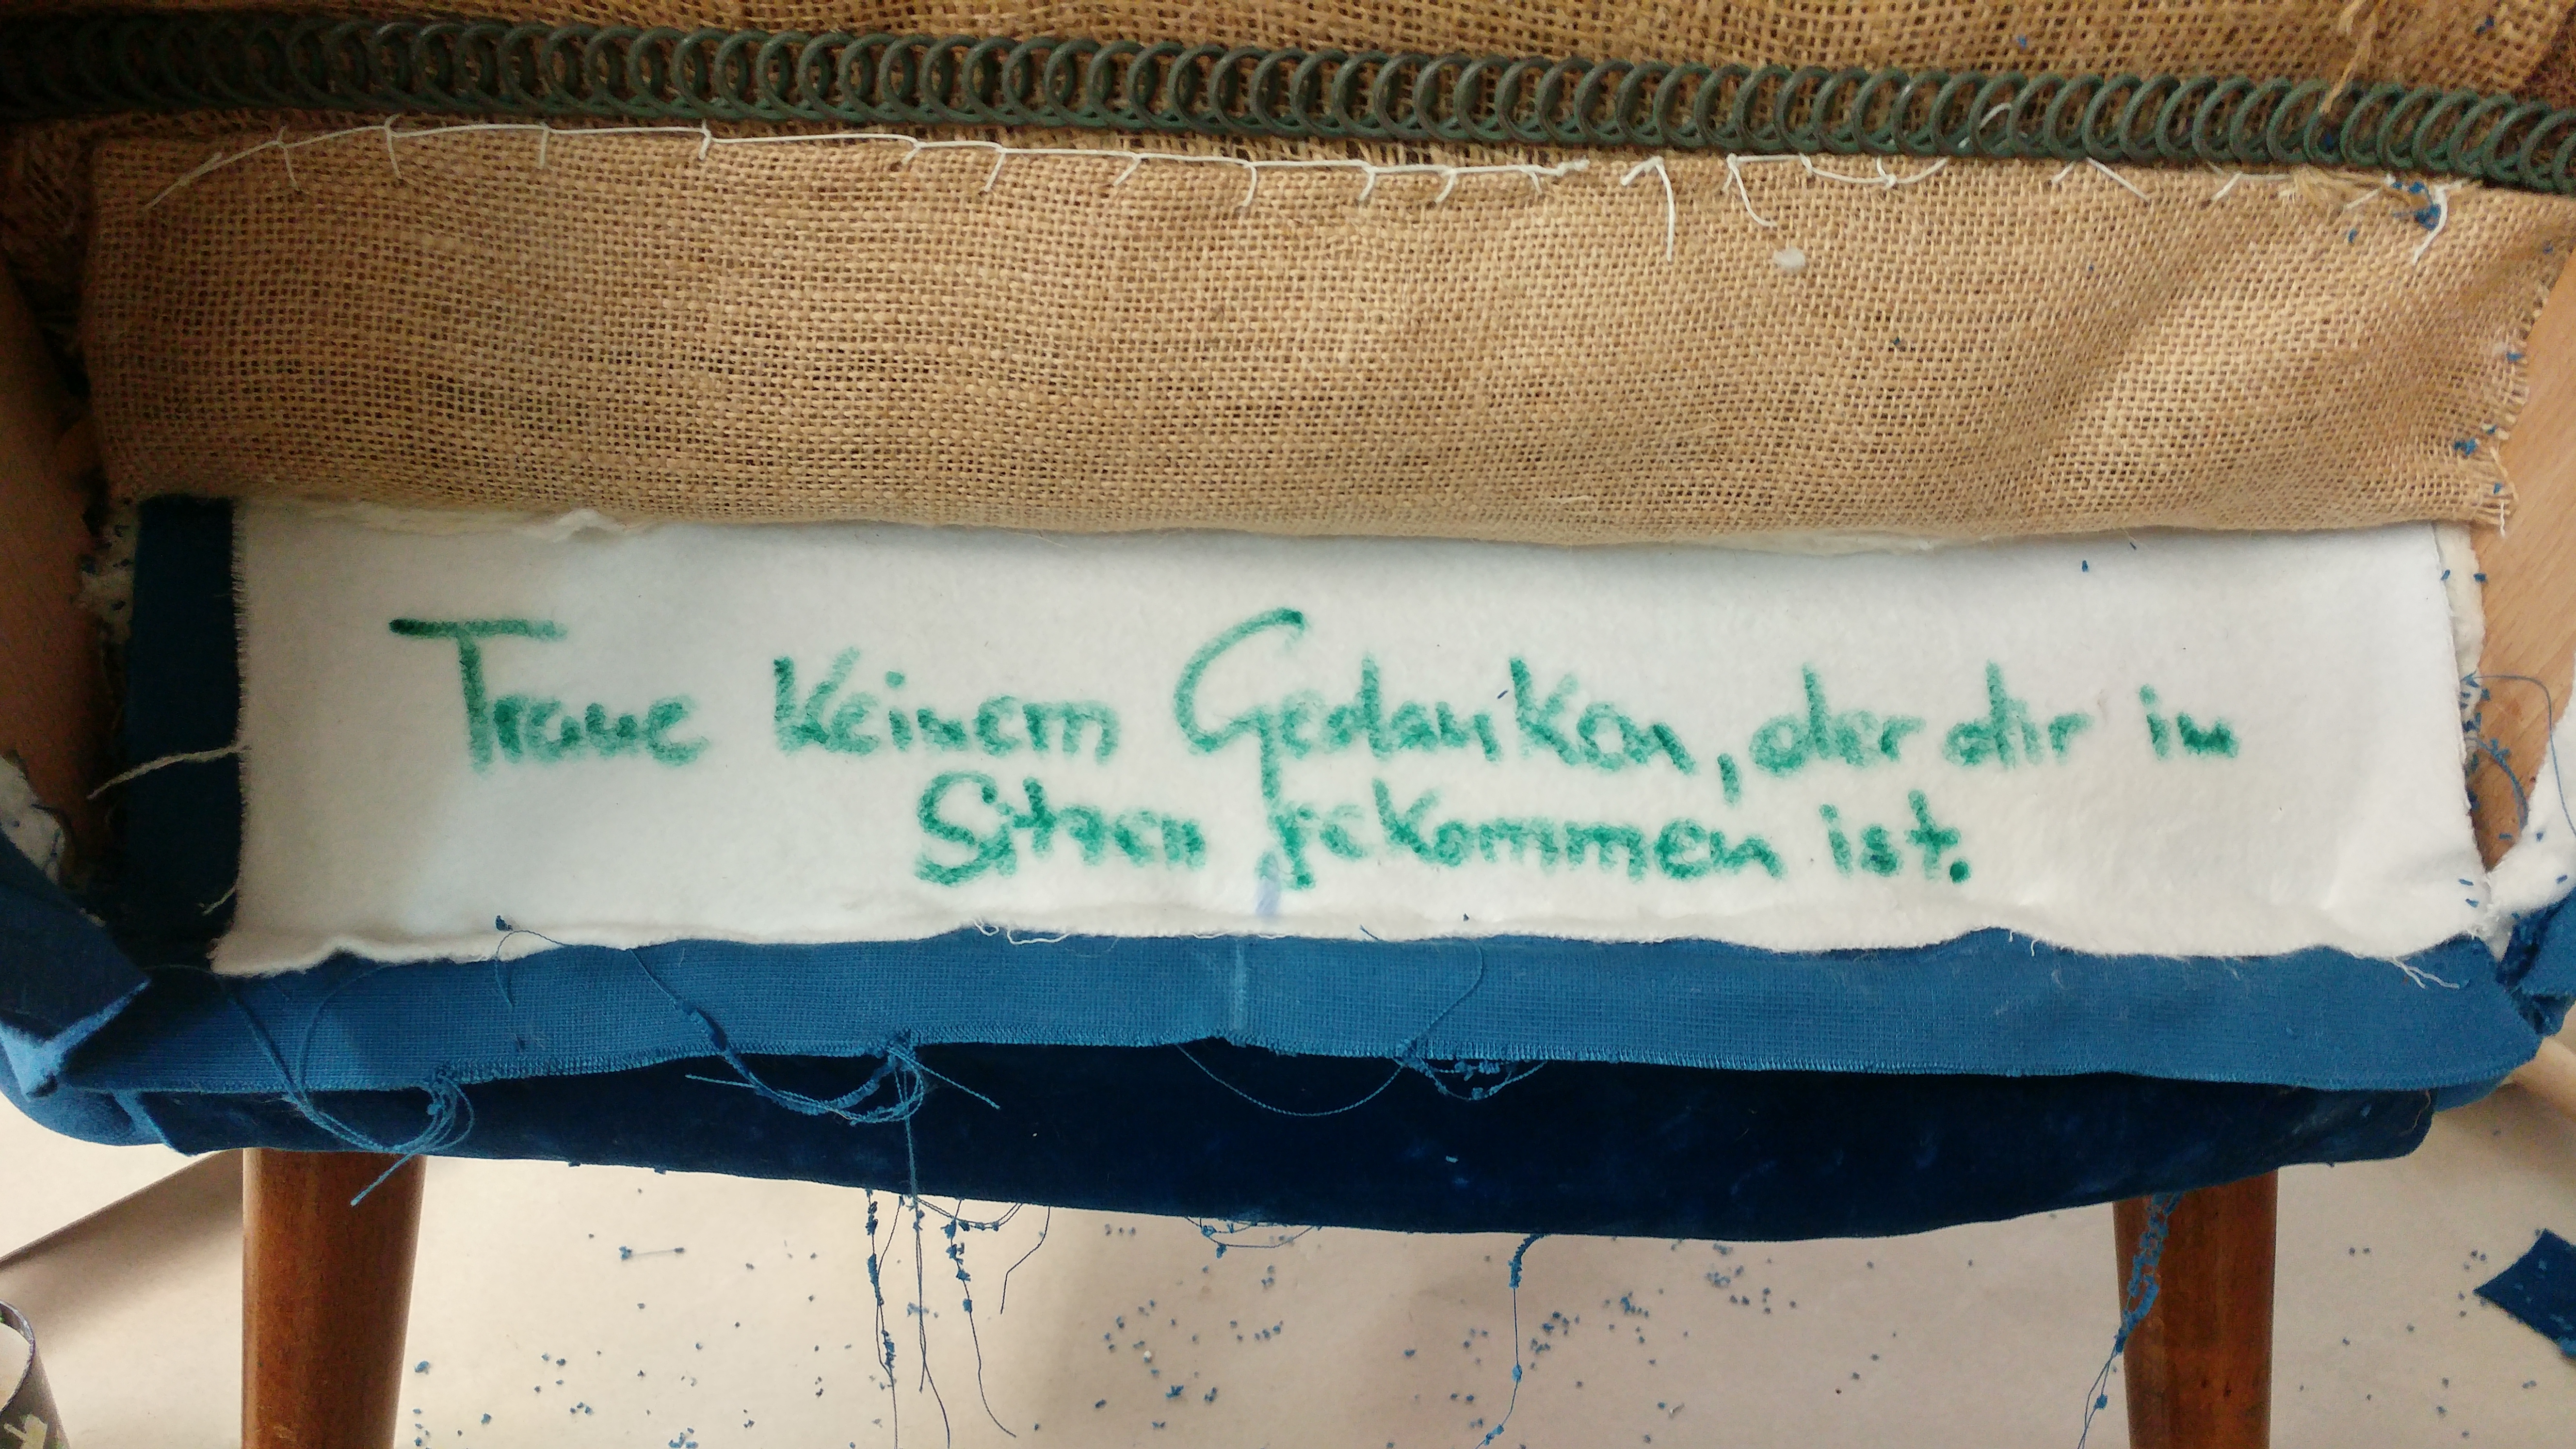 Traue keinem Gedanken, der dir im
Sitzen gekommen ist.